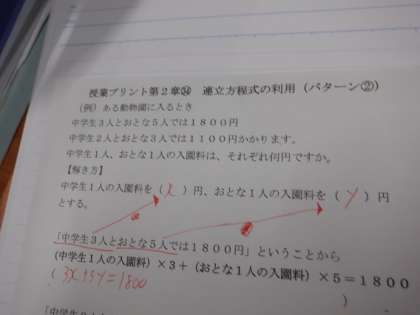 授業プリント第2章㉞ 連立方程式の利用(パターン②)
(例)ある動物園に入るとき
中学生3人とおとな5人では1800円
中学生2人とおとな3人では1100円かかります。
中学生1人、おとな1人の入園料は、それぞれ何円ですか。
【解き方】
中学生1人の入園料を( x )円、おとな1人の入園料を( y )円
とする。
「中学生3人とおとな5人では1800円」ということから
(中学生1人の入園料)×3+(おとな1人の入園料)×5=1800
( 3x+5y=1800 )